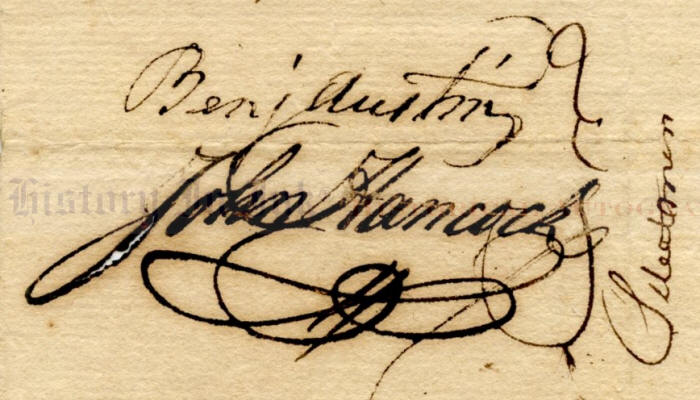 Benj Austin
John Hancock
Selectmen
History